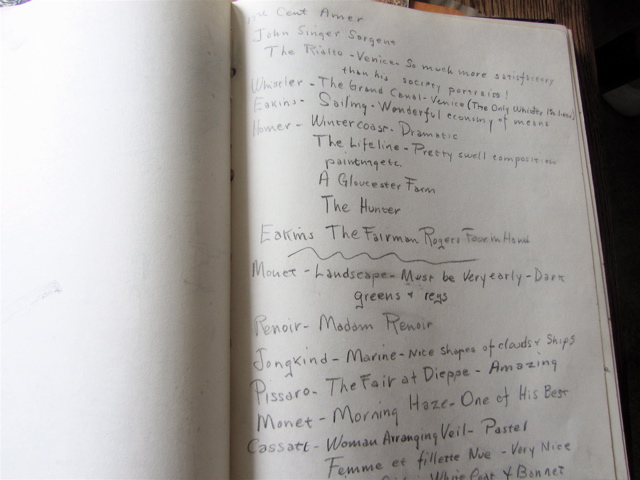 19th Cent Amer
John Singer Sargent
The Rialto - Venice - So much more satisfactory
than his society portraits!
Whistler - The Grand Canal - Venice (The Only Whistler
Eakins - Sailing - Wonderful economy of means
Homer - Wintercoast - Dramatic
The Lifeline - Pretty swell composition
painting etc.
A Gloucester Farm
The Hunter
Eakins The Fairman Rogers Four in Hand
Monet - Landscape - Must be Very early - Dark
greens &
Renoir - Madam Renoir
Jongkind - Marine - Nice shapes of clouds & ships
Pissaro - The Fair at Dieppe - Amazing
Monet - Morning Haze - One of His Best
Cassatt - Woman Arranging Veil - Pastel
Femme et fillette Nue - Very Nice
White Coat & Bonnet